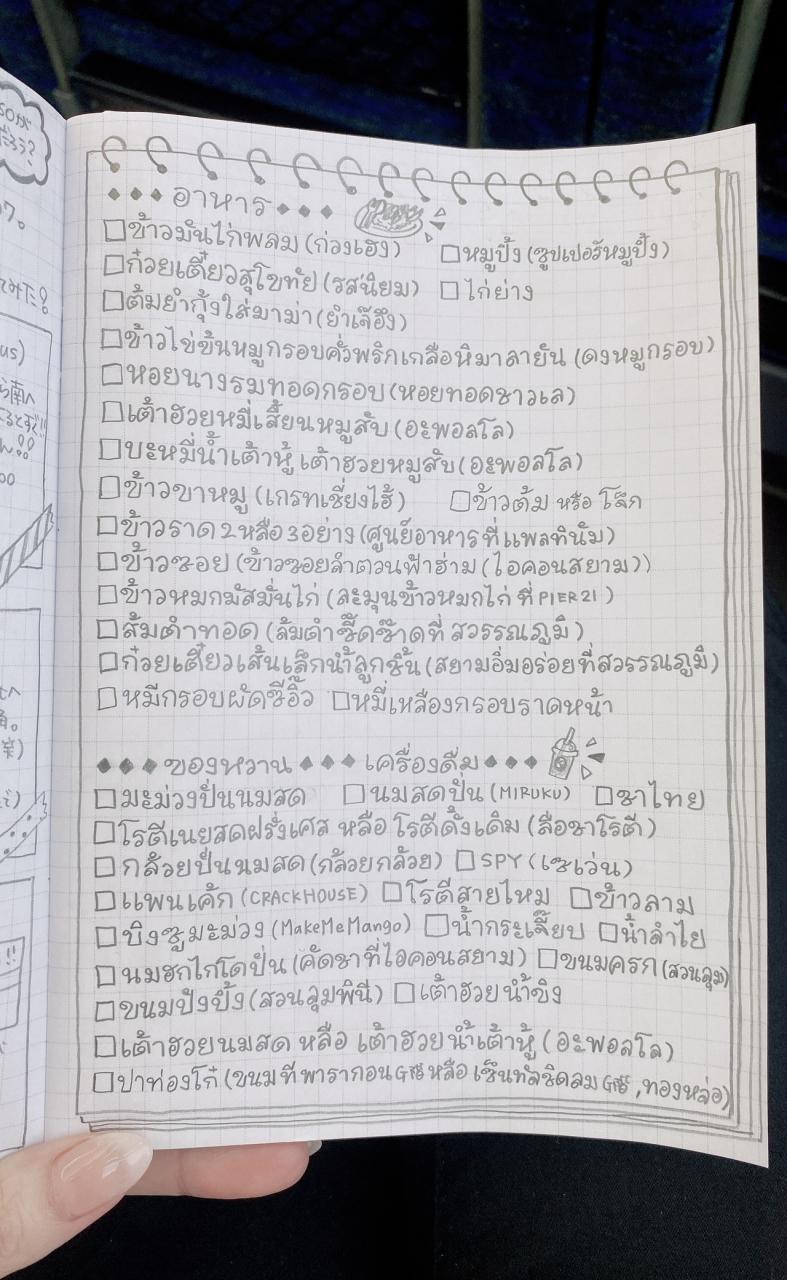 อาหาร
ข้าวมันไก่พลม (ก่วงเฮง) หมูปิ้ง (ซุปเปอร์หมูปิ้ง)
ก๋วยเตี๋ยวสุโขทัย (รสนิยม) ไก่ย่าง
ต้มยำกุ้งใส่มาม่า (ยำเจ๊อึง)
ข้าวไข่ข้นหมูกรอบคั่วพริกเกลือหิมาลายัน (ดงหมูกรอบ)
หอยนางรมทอดกรอบ (หอยทอดชาวเล)
เต้าฮวยหมี่เสี้ยนหมูสับ (อะพอลโล)
บะหมี่น้ำเต้าหู้ เต้าฮวยหมูสับ (อะพอลโล)
ข้าวขาหมู (เกรทเชี่ยงไฮ้) ข้าวต้ม หรือ โจ๊ก
ข้าวราด 2 หลือ 3 อย่าง (ศูนย์อาหารที่แพลทินั่ม)
ข้าวซอย (ข้าวซอยลำดวนฟ้าฮ่าม (ไอคอนสยาม))
ข้าวหมกมัสมั่นไก่ (ละมุนข้าวหมกไก่ ที่ PIER21)
ส้มตำทอด (ส้มตำซี๊ดซ๊าดที่ สวรรณภูมิ)
ก๋วยเตี๋ยวเส้นเล็กน้ำลูกชิ้น (สยามอิ่มอร่อยที่สวรรณภูมิ)
หมี่กรอบผัดซีอิ๊ว หมี่เหลืองกรอบราดหน้า
ของหวาน เครื่องดื่ม
มะม่วงปั่นนมสด นมสดปั่น (MIRUKU) ชาไทย
โรตีเนยสดฝรั่งเศส หลือ โรตีดั้งเดิม (ลือชาโรตี)
กล้วยปั่นนมสด (กล้วยกล้วย) SPY (เซเว่น)
แพนเค้ก (CRACKHOUSE) โรตีสายไหม ข้าวลาม
บิงซูมะม่วง (MakeMeMango) น้ำกระเจี๊ยบ น้ำลำไย
นมฮกไกโดปั่น (คัดชาที่ไอคอนสยาม) ขนมครก (สวนลุม)
ขนมปังปิ้ง (สวนลุมพินี) เต้าฮวยน้ำขิง
เต้าฮวยนมสด หลือ เต้าฮวยน้ำเต้าหู้ (อะพอลโล)
ปาท่องโก๋ (ขนมที่พารากอน หลือ เซ็นทัลชิดลม , ทองหล่อ)